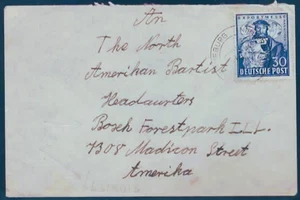 An
The North
Amerikan Bartist
Headaurters
Bosch Forestpark I.L.L.
7308 Madicon Street
Amerika
30
DEUTSCHE POST